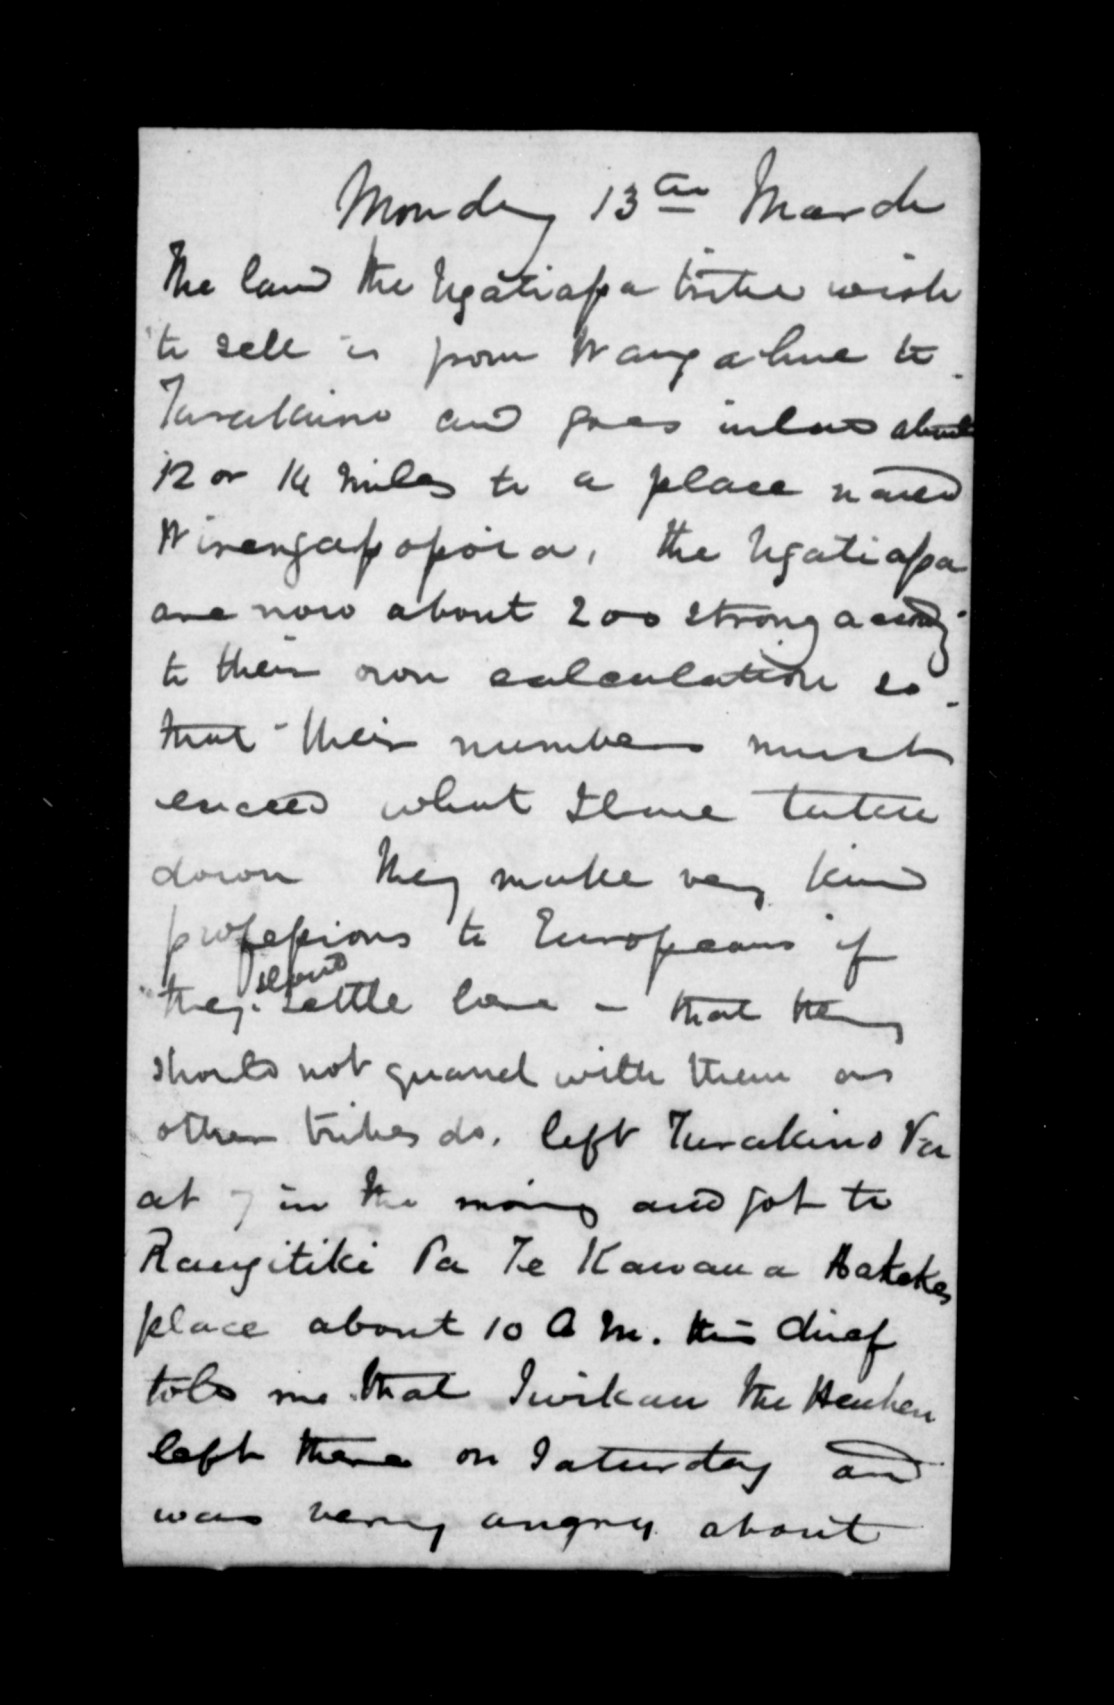 Monday 13th March
The land the Ngatiapa tribe wish
to sell is from Wangahue to
Turakino and goes inland about
12 or 14 miles to a place named
Wirengapopoia, the Ngatiapa
are now about 200 strong accordg
to their own calculation so
that their numbers must
exceed what I have taken
down They make very kind
professions to Europeans if
they should settle here - that they
should not quarrel with them as
other tribes do. left Turakino Pa
at 7 in the morning and got to
Rangitiki Pa Te Kawana Hakekes
place about 10 A M. this chief
told me that Iwikau the Heuheu
left there on Saturday and
was very angry about